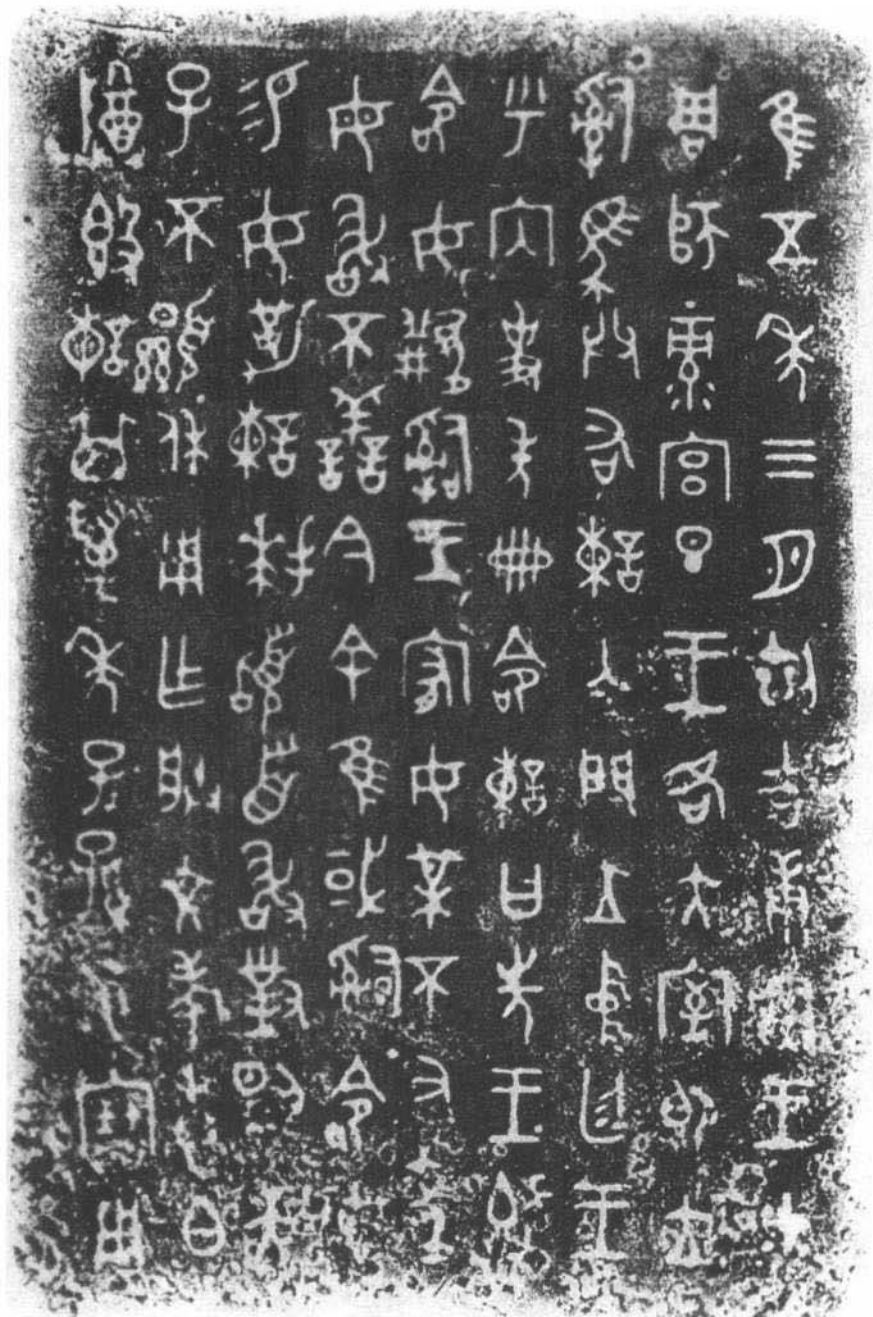 隹五年三月初吉庚寅王才
周師彔宮旦王各大室即立
𤔲馬共右諫入門立中廷王
乎內史冊命諫曰先王既
命女𤔲王宥女某不又昏
毋敢不善今余隹或𤔲命女
易女勒諫拜𩒨首敢對揚天
子不顯休用乍朕文考惠白
尊簋諫其萬年子子孫孫永寶用